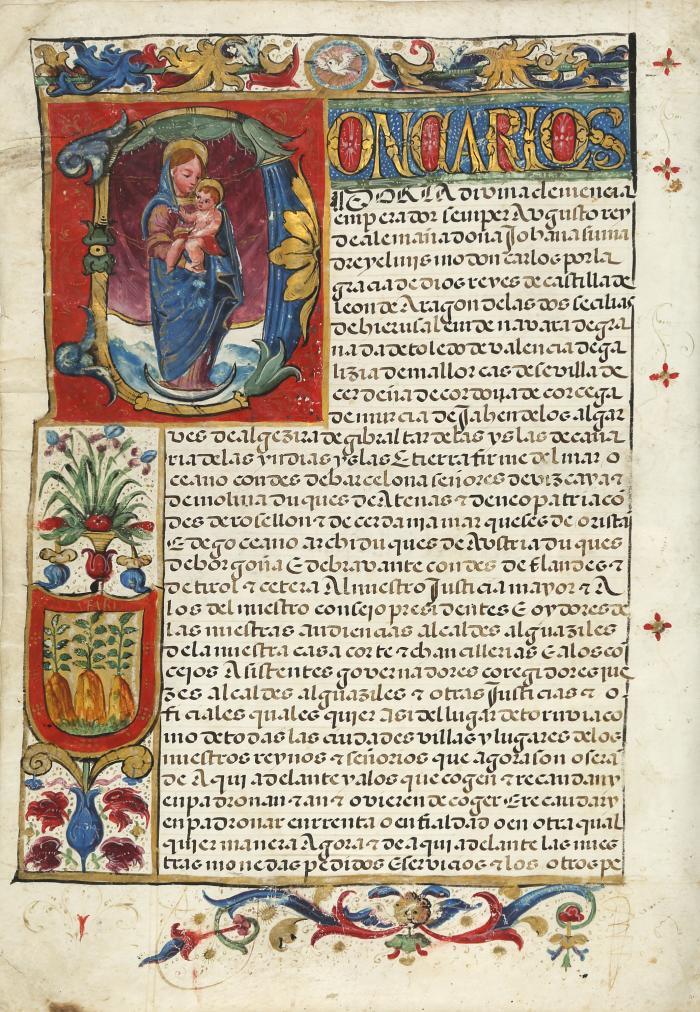 DON CARLOS
POR LA divina clemencia
emperador semper Augusto rey
de alemaña doña Johana su ma
dre y el mismo don carlos por la
gracia de dios reyes de castilla de
leon de Aragon de las dos secilias
de hierusalem de navara de gra
nada de toledo de valencia de ga
lizia de mallorcas de sevilla de
cerdeña de cordova de corcega
de murcia de Jahen de los algar
ves de algezira de gibraltar de las yslas de cana
ria de las yndias yslas E tierra firme del mar o
ceano condes de barcelona señores de vizcaya τ
de molina duques de Atenas τ de neopatria cō
des de rosellon τ de cerdania marqueses de orista
E de goceano archiduques de Avstria duques
de borgoña E de bravante condes de flandes τ
de tirol τ cetera Al nuestro Justicia mayor τ A
los del nuestro consejo presidentes E oydores de
las nuestras audiencias alcaldes alguaziles
de la nuestra casa corte τ chancillerias E a los cō
cejos Asistentes governadores coregidores jue
zes alcaldes alguaziles τ otras Justicias τ o
ficiales quales quier Asi del lugar de toruviaco
mo de todas las ciudades villas y lugares de los
nuestros reynos τ señorios que agora son o sera
de Aqui adelante y a los que cogen τ recaudan y
enpadronan τ an τ ovieren de coger E recaudar y
enpadronar en renta o en fialdad o en otra qual
quier manera Agora τ de aqui adelante las nues
tras monedas pedidos E servicios τ los otros pe